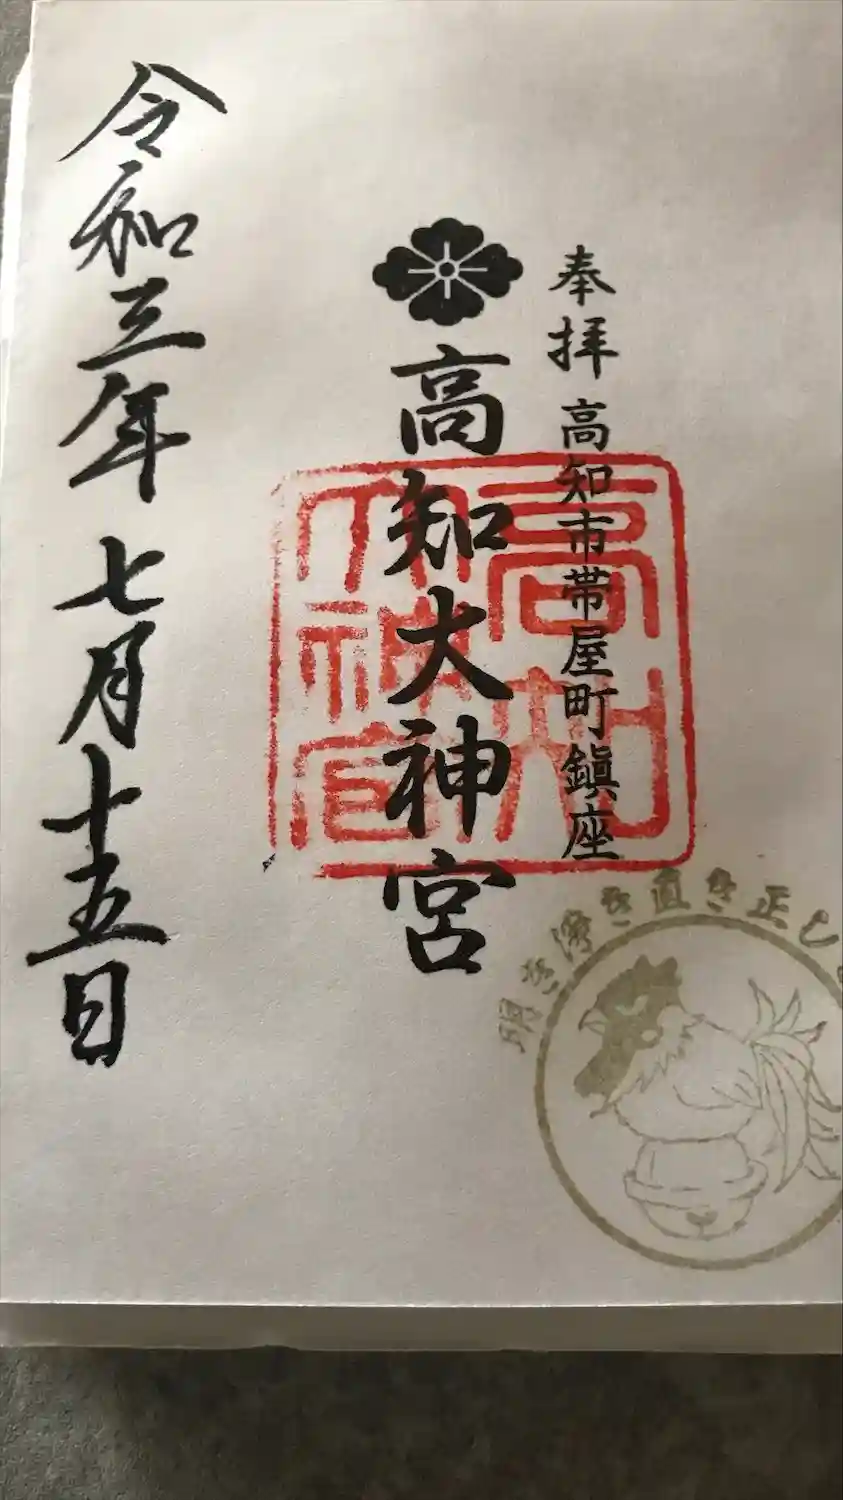 奉拝 高知市帯屋町鎮座
高知大神宮
高知大神宮
令和三年七月十五日
明き浄き直き正し